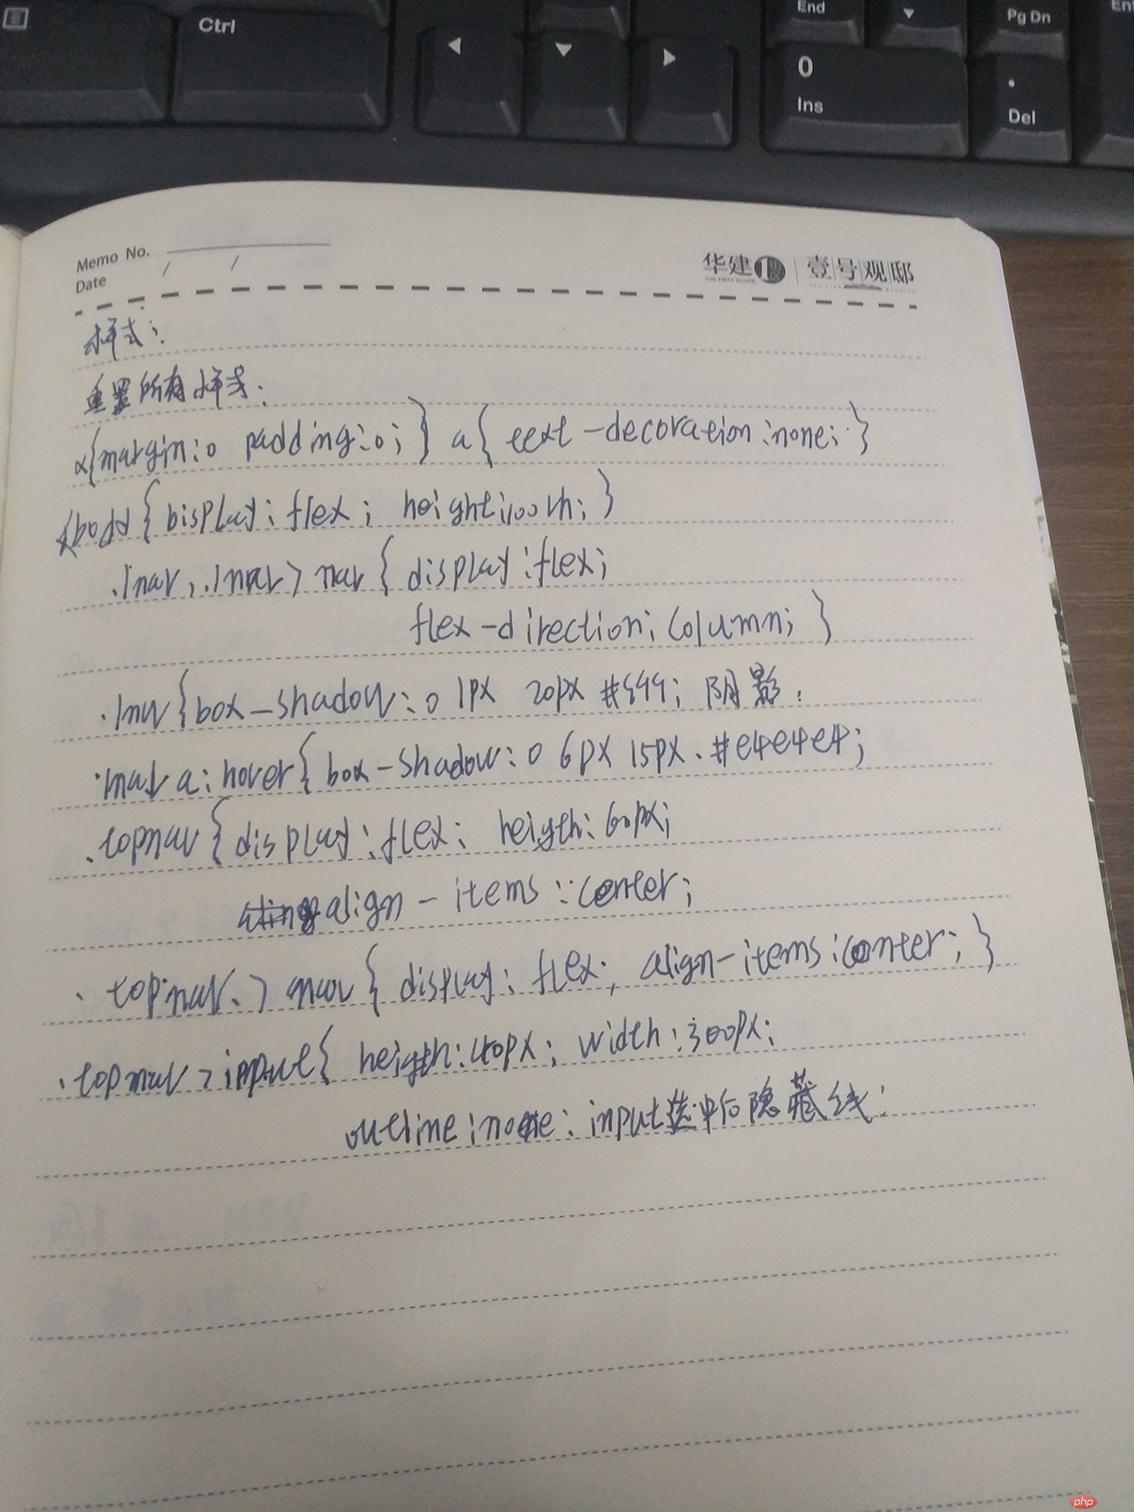 Ctrl
End
Pg Dn
0
Ins
.
Del
Memo No.
Date / /
华建1 | 壹号观邸
样式:
重置所有样式:
*{margin:0 padding:0;} a{text-decoration:none;}
body{display:flex; height:100vh;}
.lnav,.lnav>nav{display:flex;
flex-direction:column;}
.lnav{box-shadow:0 1px 20px #999; 阴影:
.nav a:hover{box-shadow:0 6px 15px #e4e4e4;
.topnav{display:flex; heigth:60px;
align-items:center;
.topnav>nav{display:flex; align-items:center;}
.topnav>input{heigth:40px; width:300px;
outline:none; input选中后隐藏线:
php